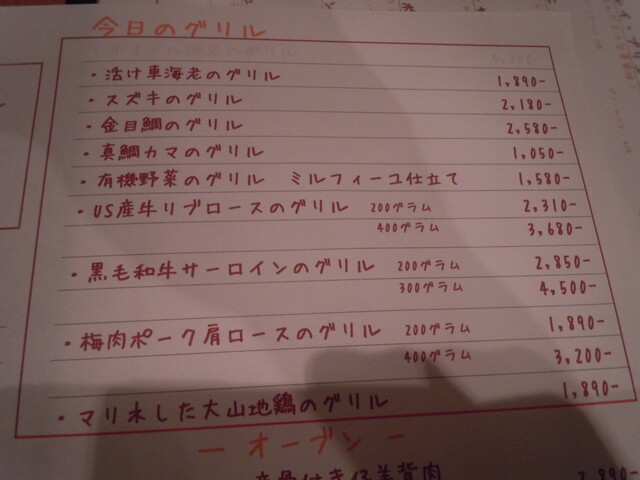 今日のグリル
・活け車海老のグリル 1,890-
・スズキのグリル 2,180-
・金目鯛のグリル 2,580-
・真鯛カマのグリル 1,050-
・有機野菜のグリル ミルフィーユ仕立て 1,580-
・US産牛リブロースのグリル 200グラム 2,310-
400グラム 3,680-
・黒毛和牛サーロインのグリル 200グラム 2,850-
300グラム 4,500-
・梅肉ポーク肩ロースのグリル 200グラム 1,890-
400グラム 3,200-
・マリネした大山地鶏のグリル 1,890-
ー オーブン ー
骨付き仔羊背肉 2,890-